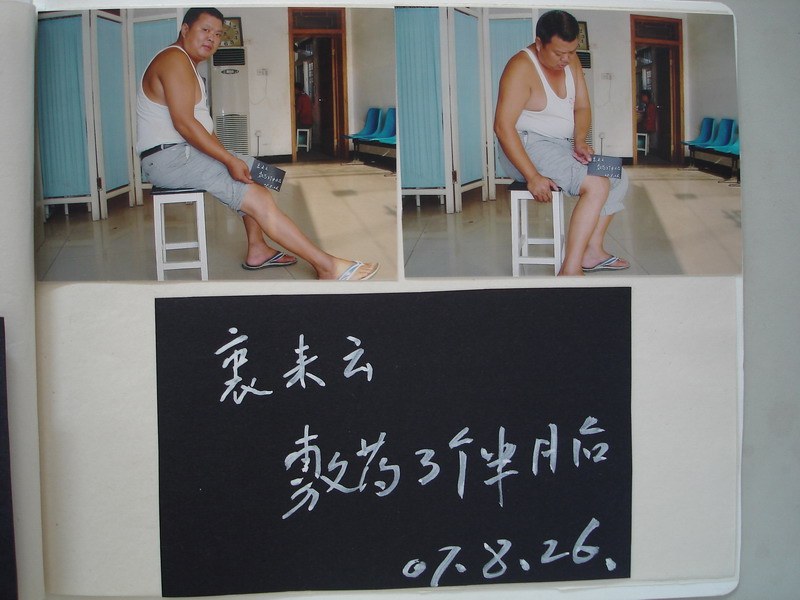 裹来云
敷药3个半月后
07.8.26.